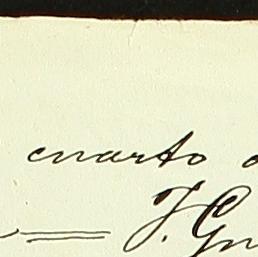 cuarto
J. Gu